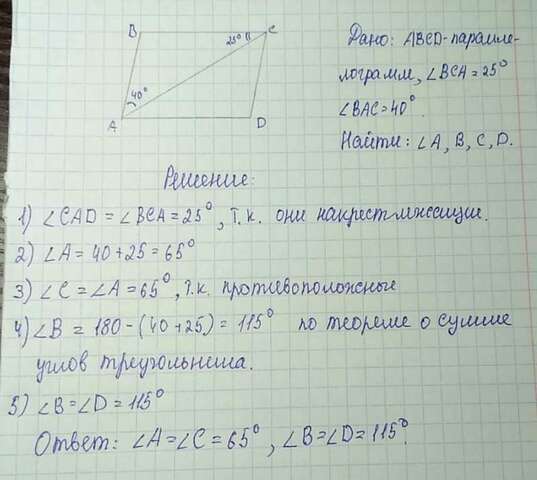 B
C
25°
40°
A
D
Дано: ABCD-паралле-
лограмм, ∠BCA=25°
∠BAC=40°.
Найти: ∠A, B, C, D.
Решение:
1) ∠CAD=∠BCA=25°, т.к. они накрест лежащие.
2) ∠A=40+25=65°
3) ∠C=∠A=65°, т.к. противоположные
4) ∠B = 180-(40+25)= 115° по теореме о сумме
углов треугольника.
5) ∠B=∠D=115°
Ответ: ∠A=∠C=65°, ∠B=∠D=115°.